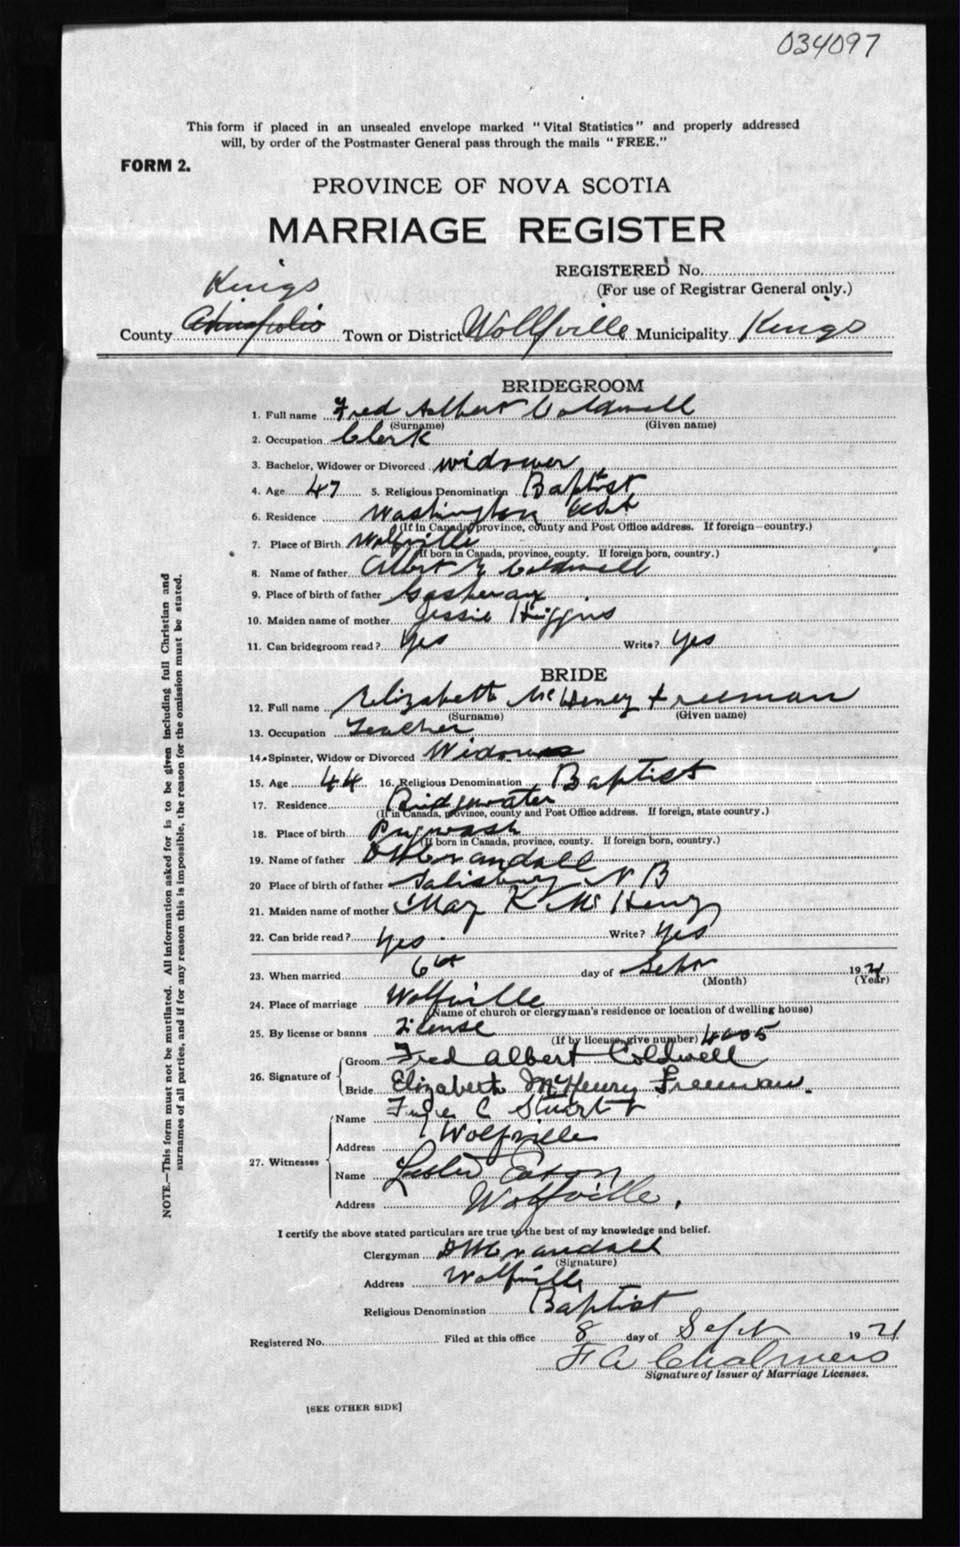 034097
This form if placed in an unsealed envelope marked "Vital Statistics" and properly addressed
will, by order of the Postmaster General pass through the mails "FREE."
FORM 2.
PROVINCE OF NOVA SCOTIA
MARRIAGE REGISTER
REGISTERED No.
(For use of Registrar General only.)
Kings
County Annapolis Town or District Wolfville Municipality Kings
BRIDEGROOM
1. Full name Fred Albert Coldwell
(Surname) (Given name)
2. Occupation Clerk
3. Bachelor, Widower or Divorced widower
4. Age 47 5. Religious Denomination Baptist
6. Residence Washington
(If in Canada, province, county and Post Office address. If foreign—country.)
7. Place of Birth Wolfville
(If born in Canada, province, county. If foreign born, country.)
8. Name of father Albert E Coldwell
9. Place of birth of father Gaspereau
10. Maiden name of mother Jessie Higgins
11. Can bridegroom read? Yes Write? Yes
BRIDE
12. Full name Elizabeth McHenry Freeman
(Surname) (Given name)
13. Occupation Teacher
14. Spinster, Widow or Divorced Widow
15. Age 44 16. Religious Denomination Baptist
17. Residence Bridgewater
(If in Canada, province, county and Post Office address. If foreign, state country.)
18. Place of birth Pugwash
(If born in Canada, province, county. If foreign born, country.)
19. Name of father D W Crandall
20 Place of birth of father Salisbury N B
21. Maiden name of mother May K McHenry
22. Can bride read? Yes Write? Yes
23. When married 6th day of Sept 1921
(Month) (Year)
24. Place of marriage Wolfville
(Name of church or clergyman's residence or location of dwelling house)
25. By license or banns License
(If by license, give number) 4005
26. Signature of
Groom Fred Albert Coldwell
Bride Elizabeth McHenry Freeman.
27. Witnesses
Name C Stuart
Address Wolfville
Name Leslie Eaton
Address Wolfville.
I certify the above stated particulars are true to the best of my knowledge and belief.
Clergyman D W Crandall
(Signature)
Address Wolfville
Religious Denomination Baptist
Registered No. Filed at this office 8 day of Sept 1921
F A Chalmers
Signature of Issuer of Marriage Licenses.
[SEE OTHER SIDE]
NOTE.—This form must not be mutilated. All information asked for is to be given including full Christian and
surnames of all parties, and if for any reason this is impossible, the reason for the omission must be stated.